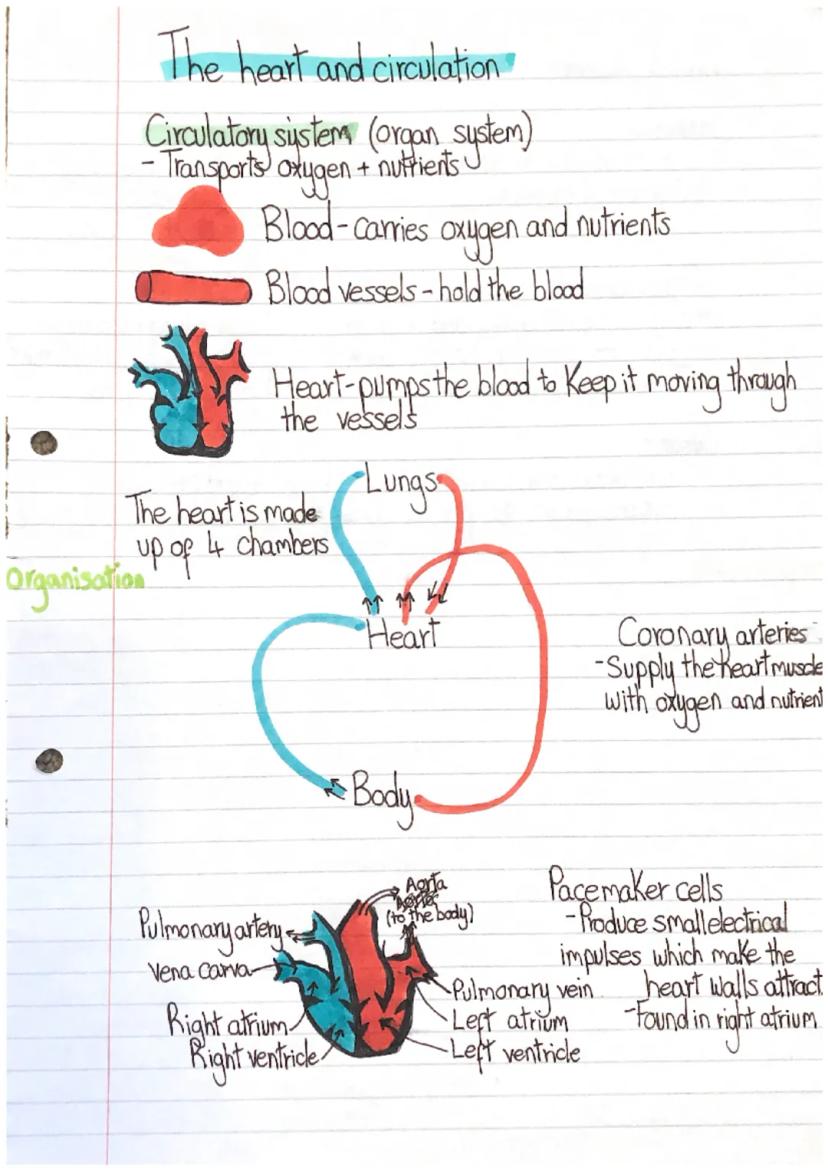 The heart and circulation
Circulatory system (organ system)
- Transports oxygen + nutrients
Blood - carries oxygen and nutrients
Blood vessels - hold the blood
Heart - pumps the blood to Keep it moving through
the vessels
The heart is made
up of 4 chambers
Lungs
Organisation
Heart
Coronary arteries
- Supply the heart muscle
with oxygen and nutrient
Body
Pacemaker cells
- Produce small electrical
impulses which make the
heart walls attract
- Found in right atrium
Aorta
(to the body)
Pulmonary artery
Vena carva
Right atrium
Right ventricle
Pulmonary vein
Left atrium
Left ventricle